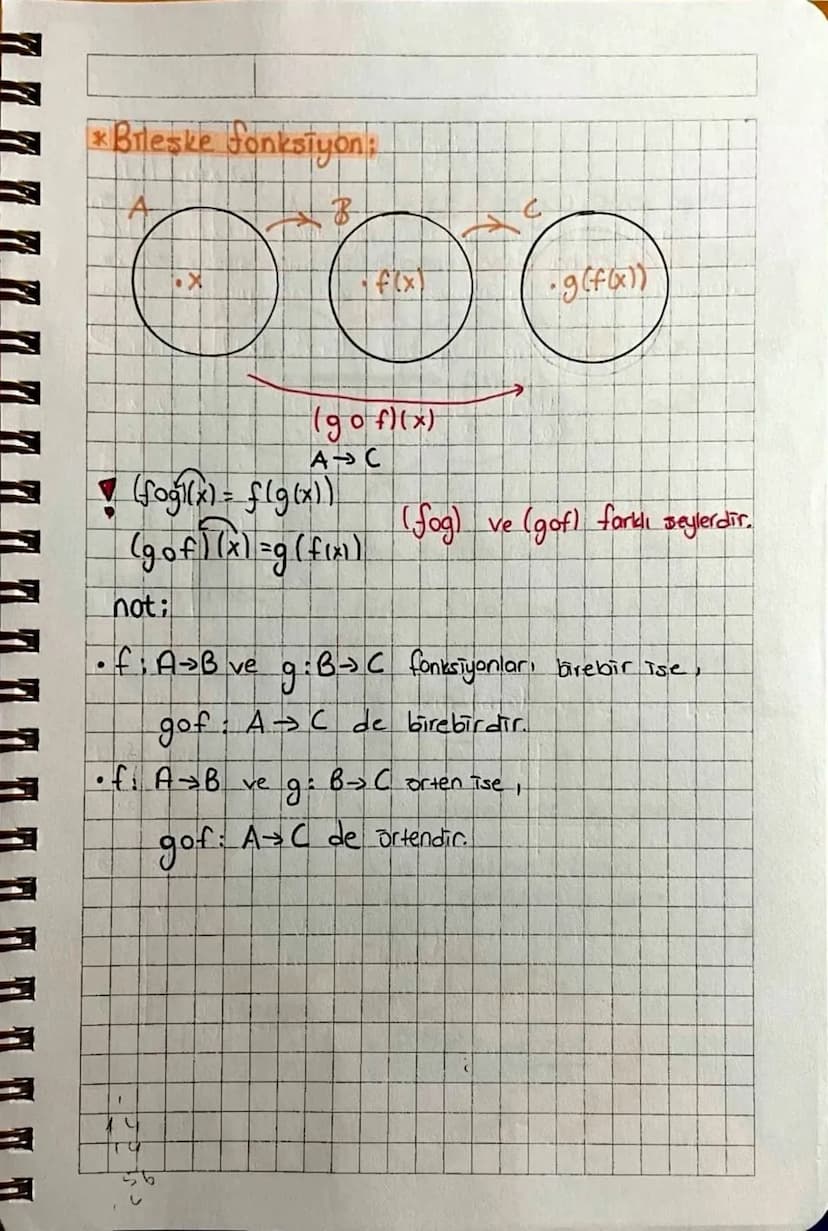 *Bileşke fonksiyon;
A B C
.x .f(x) .g(f(x))
(gof)(x)
A→C
! (fog)(x) = f(g(x))
(fog) ve (gof) farklı şeylerdir.
(gof)(x) = g(f(x))
not;
• f: A→B ve g: B→C fonksiyonları birebir ise,
gof: A→C de birebirdir.
• f: A→B ve g: B→C örten ise,
gof: A→C de örtendir.